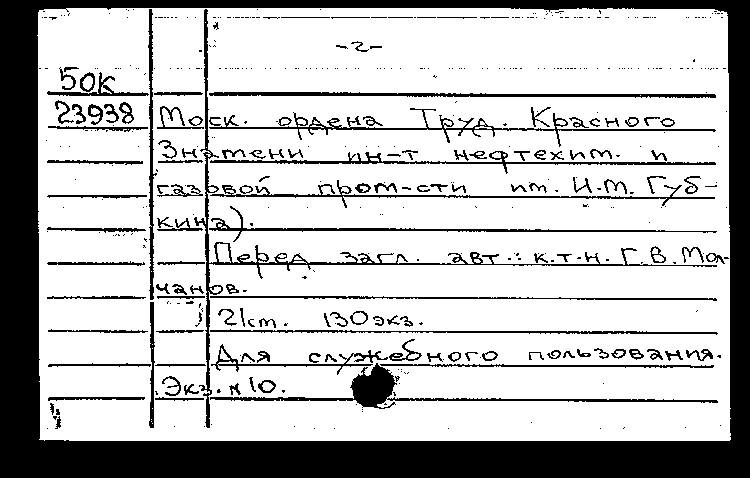 -2-
50К
23938 Моск. ордена Труд. Красного
Знамени ин-т нефтехим. и
газовой пром-сти им. И.М. Губ-
кина).
Перед загл. авт.: к.т.н. Г.В. Мол-
чанов.
21 см. 130 экз.
Для служебного пользования.
Экз. № 10.